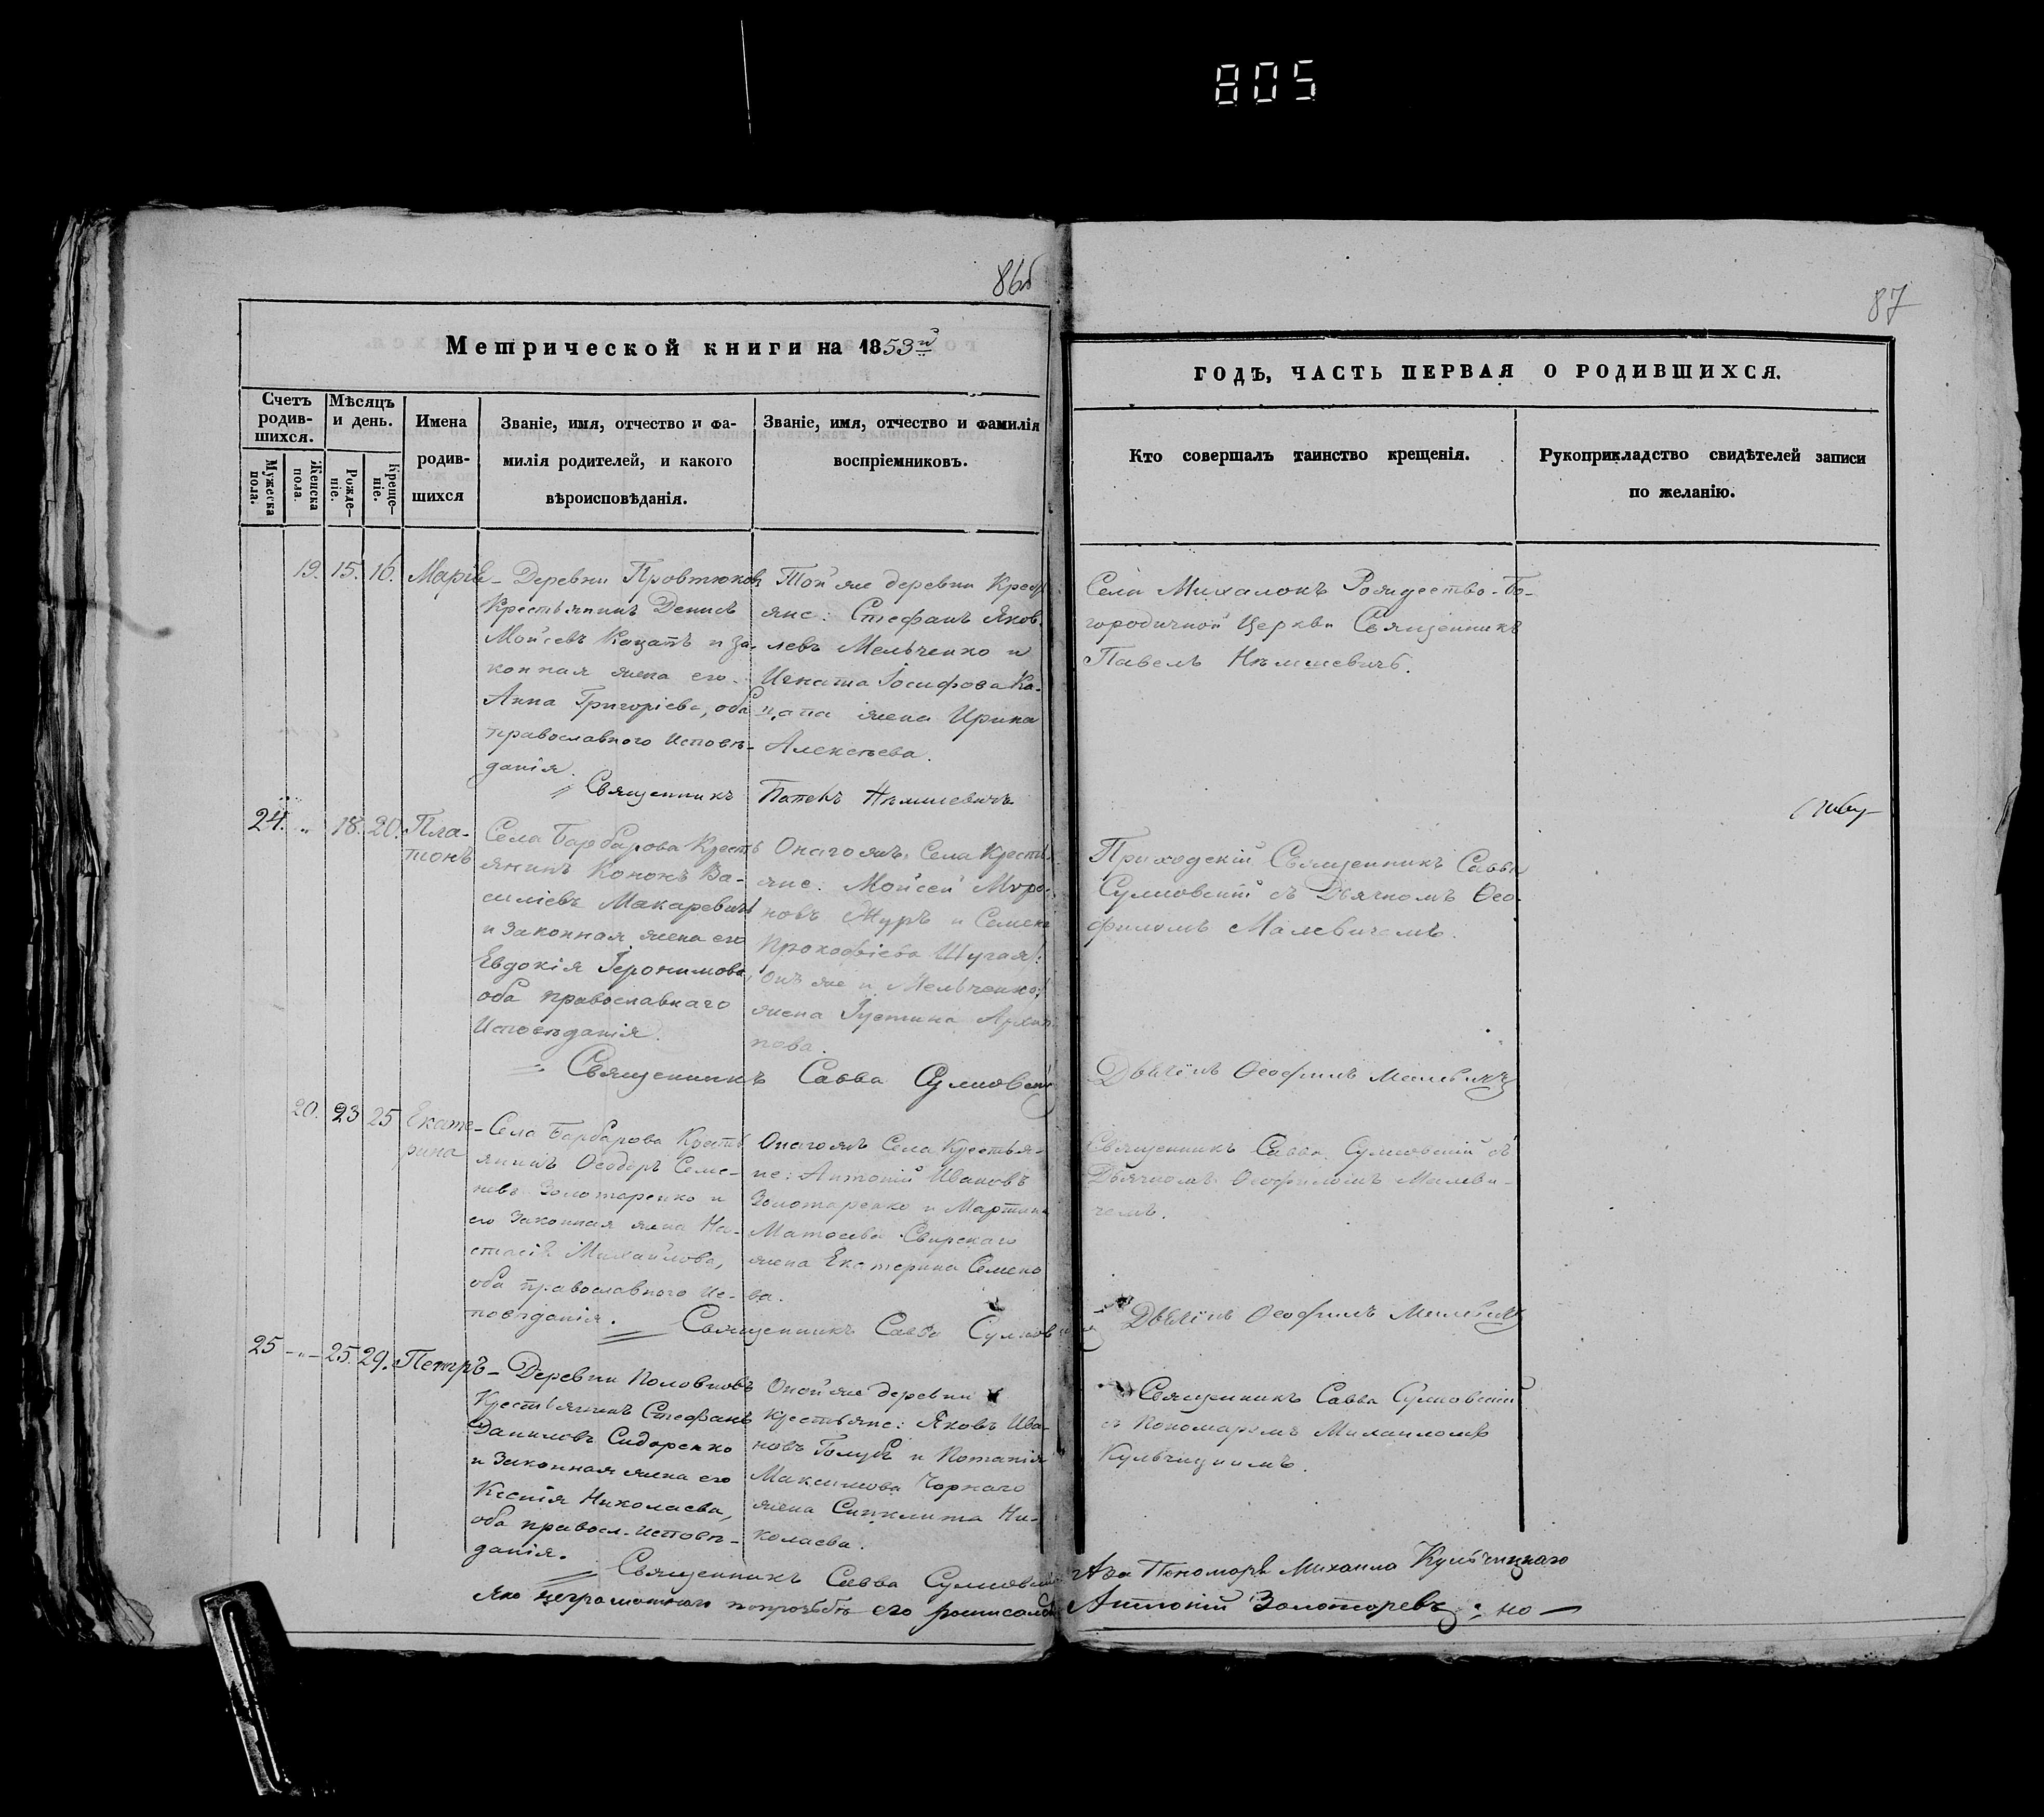 805
86б
87
Метрической книги на 1853й
ГОДЪ, ЧАСТЬ ПЕРВАЯ О РОДИВШИХСЯ.
Счетъ родив-шихся.
Мужеска пола.
Женска пола.
Мѣсяцъ и день.
Рожде-ніе.
Креще-ніе.
Имена
родив-
шихся
Званіе, имя, отчество и фа-
милія родителей, и какого
вѣроисповѣданія.
Званіе, имя, отчество и фамилія
воспріемниковъ.
Кто совершалъ таинство крещенія.
Рукоприкладство свидѣтелей записи
по желанію.
19. 15. 16. Марія
Деревни
Крестьянинъ Денисъ
Мойсеевъ Кацапъ и за-
конная жена его
Анна Григоріева, оба
православнаго Исповѣ-
данія.
Той же деревни Крестья
яне: Стефанъ Яков-
левъ Мельченко и
Игната Іосифова Ка-
цапа жена Ирина
Алексѣева.
Священникъ Павелъ Нѣмшевичъ
Села Михалокъ Рождество-Бо-
городичной Церкви Священникъ
Павелъ Нѣмшевичъ.
24. " 18. 20. Пла-
тонъ
Села Барбарова Кресть
янинъ Кононъ Ва-
силіевъ Макаревичъ
и законная жена его
Евдокія Іеронимова,
оба православнаго
Исповѣданія.
Онагожъ Села Кресть
яне: Мойсей Миро-
новъ Журъ и Семена
Прокофіева Шугая
онъ же и Мельченко
жена Іустина Архип
пова.
Священникъ Савва
Приходскій Священникъ Савва
съ Дьячкомъ Ѳео-
филомъ Малевичемъ.
Ѳеофилъ Малевичъ
20. 23 25 Екате-
рина
Села Барбарова Кресть
янинъ Ѳеодоръ Семе-
новъ Золотаренко и
его законная жена На-
стасія Михайлова,
оба православнаго Ис-
повѣданія.
Онагожъ Села Крестья-
не: Антоній Ивановъ
Золотаренко и Мартина
Матѳеева Свирскаго
жена Екатерина Семено
ва.
Священникъ Савва
Священникъ Савва съ
Дьячкомъ Ѳеофиломъ Малеви-
чемъ.
Ѳеофилъ Малевичъ
25 -"- 25. 29. Петръ
Деревни
Крестьянинъ Стефанъ
Даниловъ Сидоренко
и законная жена его
Ксенія Николаева,
оба правосл. исповѣ-
данія.
Оной же деревни
Крестьяне: Яковъ Ива-
новъ Голубъ и Потапія
Максимова Чорнаго
жена Синклита Ни-
колаева.
Священникъ Савва
Священникъ Савва
съ Пономаремъ Михаиломъ
Кульчицкимъ.
Пономаря Михаила Кульчицкаго
его росписался
Антоній